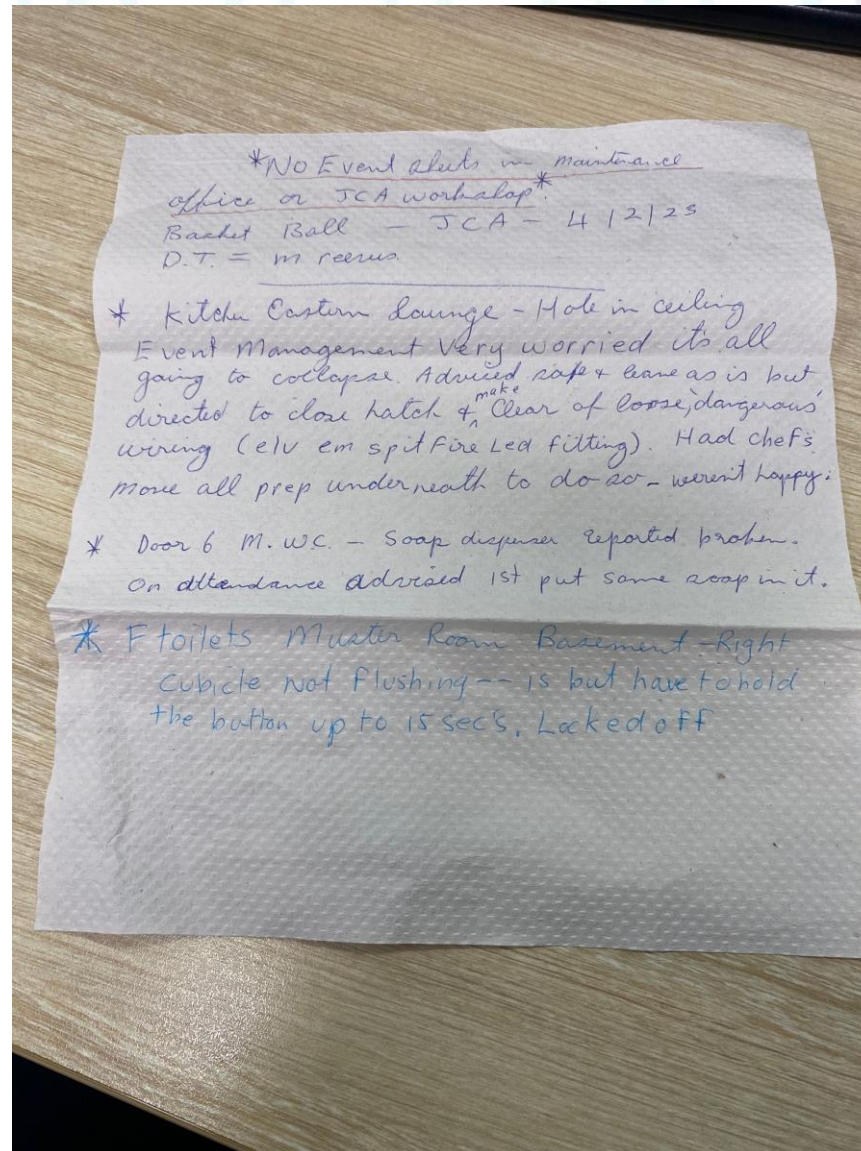 *No Event sheets in maintenance
office or JCA workshop*.
Basket Ball - JCA - 4/2/25
D.T. = m
* Kitchen Eastern Lounge - Hole in ceiling
Event Management Very worried it's all
going to collapse. Adviced safe & leave as is but
directed to close hatch & make Clear of loose, dangerous
wiring (elv em spitfire Led fitting). Had chef's
move all prep underneath to do so - weren't happy.
* Door 6 M. W.C. - Soap dispenser reported broken.
On attendance advised 1st put some soap in it.
* F toilets Muster Room Basement - Right
Cubicle Not Flushing -- is but have to hold
the button up to 15 sec's. Locked off